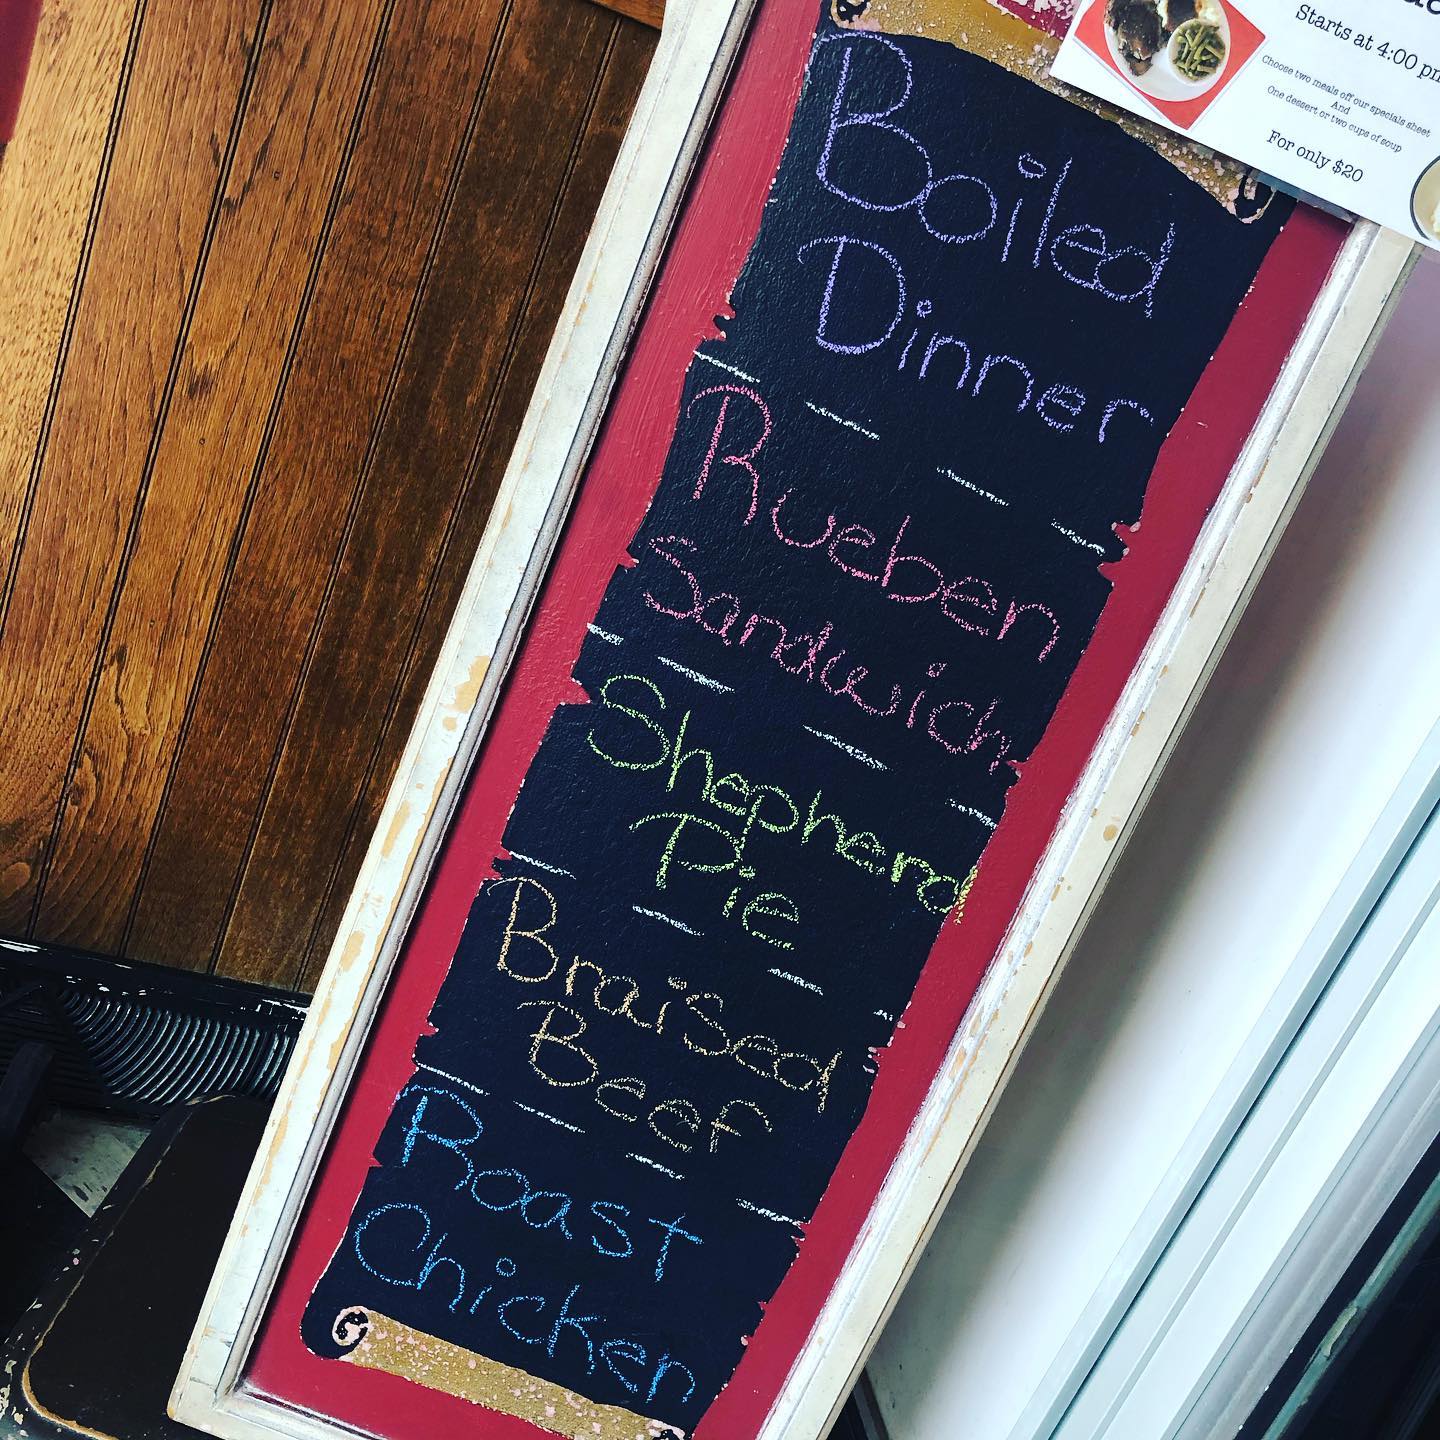 Starts at 4:00 pm
Choose two meals off our specials sheet
And
One dessert or two cups of soup
For only $20
Boiled
Dinner
Rueben
Sandwich
Shepherd
Pie
Braised
Beef
Roast
Chicken